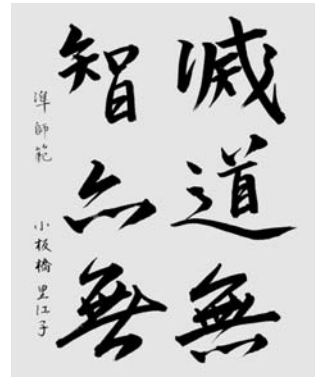 滅道無
智亦無
準師範 小板橋里江子